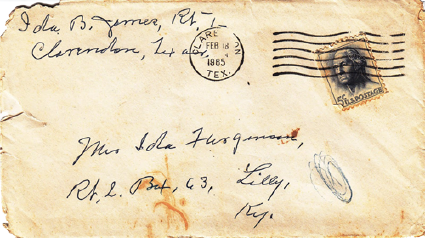 Ida B. James, Rt. 1
Clarendon, Texas
CLARENDON
FEB 18
1965
TEX.
5¢ U.S. POSTAGE
Mrs Ida Furgerson,
Rt. 2. Box, 63, Lilly,
Ky.